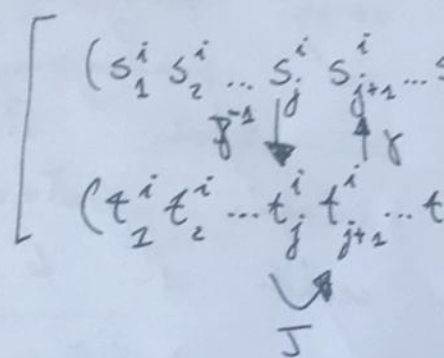 (s₁ⁱ s₂ⁱ ... sⱼⁱ sⱼ₊₁ⁱ ... s
γ⁻¹ ↓ ↑ γ
(t₁ⁱ t₂ⁱ ... tⱼⁱ tⱼ₊₁ⁱ ... t
J